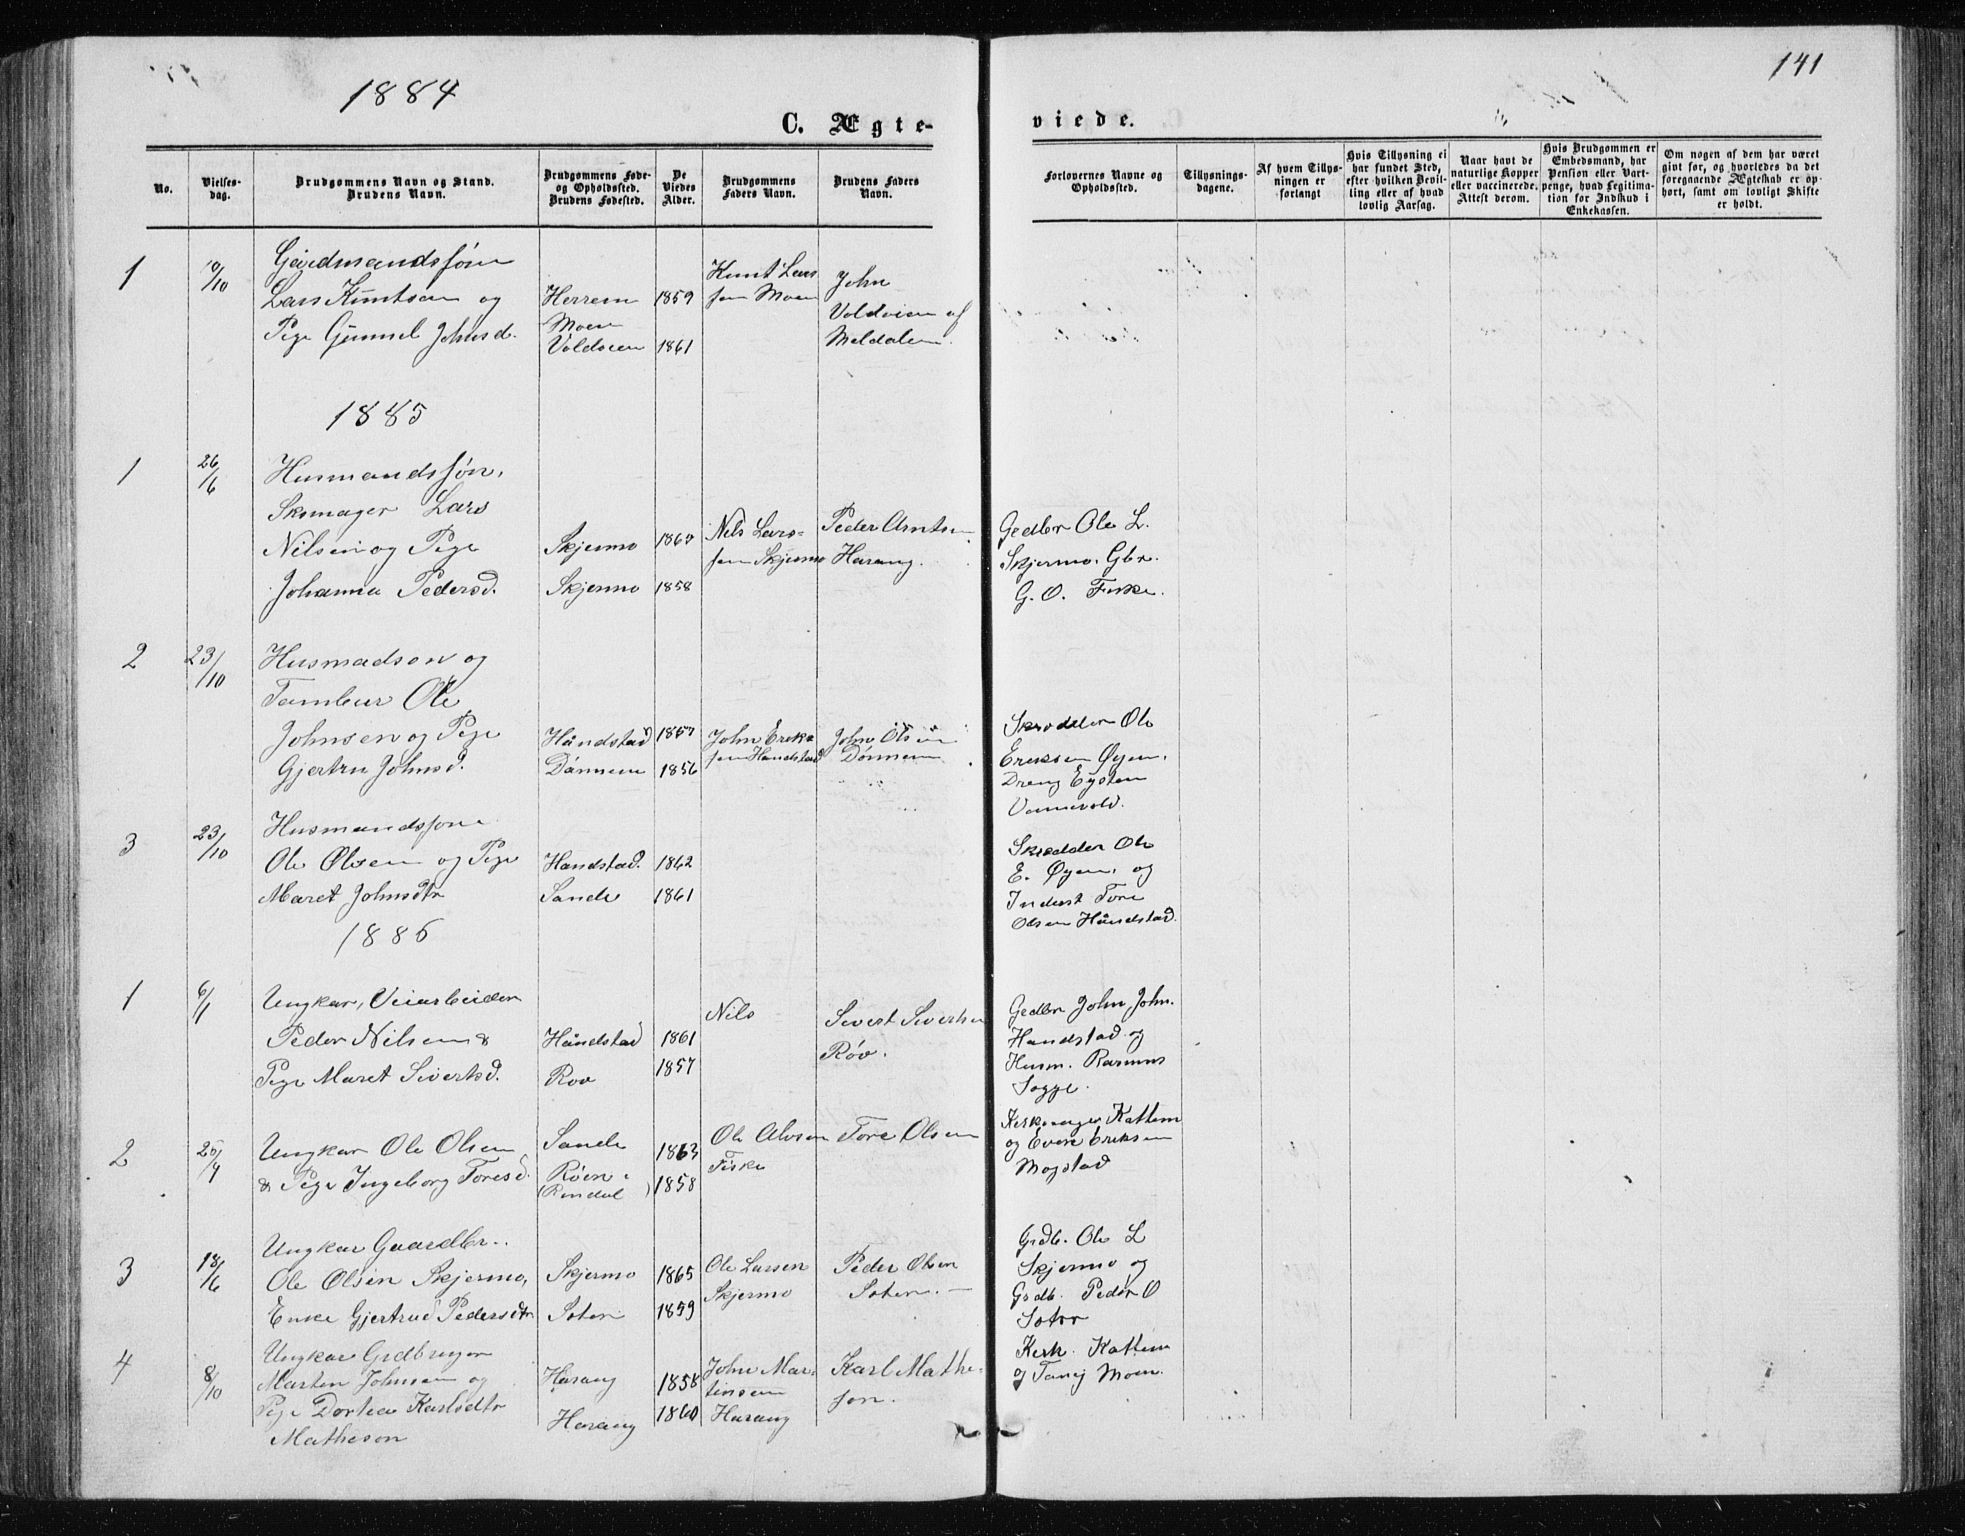 1884
141
C. Ægte-
viede.
No.
Vielses-
dag.
Brudgommens Navn og Stand.
Brudens Navn.
Brudgommens Føde-
og Opholdssted.
Brudens Fødested.
De
Viedes
Alder.
Brudgommens
Faders Navn.
Brudens Faders
Navn.
Forlovernes Navne og
Opholdssted.
Tillysnings-
dagene.
Af hvem Tillys-
ningen er
forlangt
Hvis Tillysning ei
har fundet Sted,
efter hvilken Bevil-
ling eller af hvad
lovlig Aarsag.
Naar havt de
naturlige Kopper
eller vaccinerede.
Attest derom.
Hvis Brudgommen er
Embedsmand, har
Pension eller Vart-
penge, hvad Legitima-
tion for Indskud i
Enkekassen.
Om nogen af dem har været
gift før, og hvorledes da det
foregaaende Ægteskab er op-
hørt, samt om lovligt Skifte
er holdt.
1
10/10
Gårdmandssøn
Lars Knutsen og
Pige Gunnel Johnsd.
Herrem
Moen
Voldveien
1859
1861
Knut Lars
sen Moen
John
Voldveien af
Meldalen.
1885
1
26/6
Husmandssøn,
Skomager Lars
Nilsen og Pige
Johanna Pedersd.
Skjermo
Skjermo
1860
1858
Nils Lars-
sen Skjermo
Peder Arntsen
Harang.
Gedbr Ole L.
Skjermo. Gbr.
G. O. Fiske.
2
23/10
Husmadsøn og
Tambur Ole
Johnsen og Pige
Gjertru Johnsd.
Håndstad
Dønnem
1857
1856
John Erik-
sen Handstad
John Olsen
Dønnem
Skrædder Ole
Eriksen Øyen,
Dreng Eysten
3
23/10
Husmandssøn
Ole Olsen og Pige
Maret Johnsdtr
Handstad.
Sande
1862
1861
Skrædder Ole
E. Øyen, og
Inderst Tore
Olsen Håndstad.
1886
1
6/1
Ungkar, Veiarbeider
Peder Nilsen &
Pige Maret Sivertsd.
Håndstad
Rov
1861
1857
Nils
Sivert Sivertsen
Røv.
Gedbr John John.
Handstad og
Husm. Rasmus
Sogge.
2
25/4
Ungkar Ole Olsen
& Pige Ingeborg Toresd.
Sande
Røen.
(Rindal)
1863
1858
Ole Olsen
Fiske
Tore Olsen
Kirkesanger Kattem
og Even Eriksen
Mogstad
3
18/6
Ungkar Gaardbr.
Ole Olsen Skjermo,
Enke Gjertrud Pedersdtr
Skjermo
Soten
1865
1859
Ole Larsen
Skjermo
Peder Olsen
Soten. —
Grdb. Ole L
Skjermo og
Grdb. Peder O
4
8/10
Ungkar Grdbruger
Marten Johnsen og
Pige Dortea Karlsdtr
Matheson
Harang
Harang
1858
1860
John Mar-
tinsen
Harang
Karl Mathe-
son.
Kirk. Kattem
og Moen.